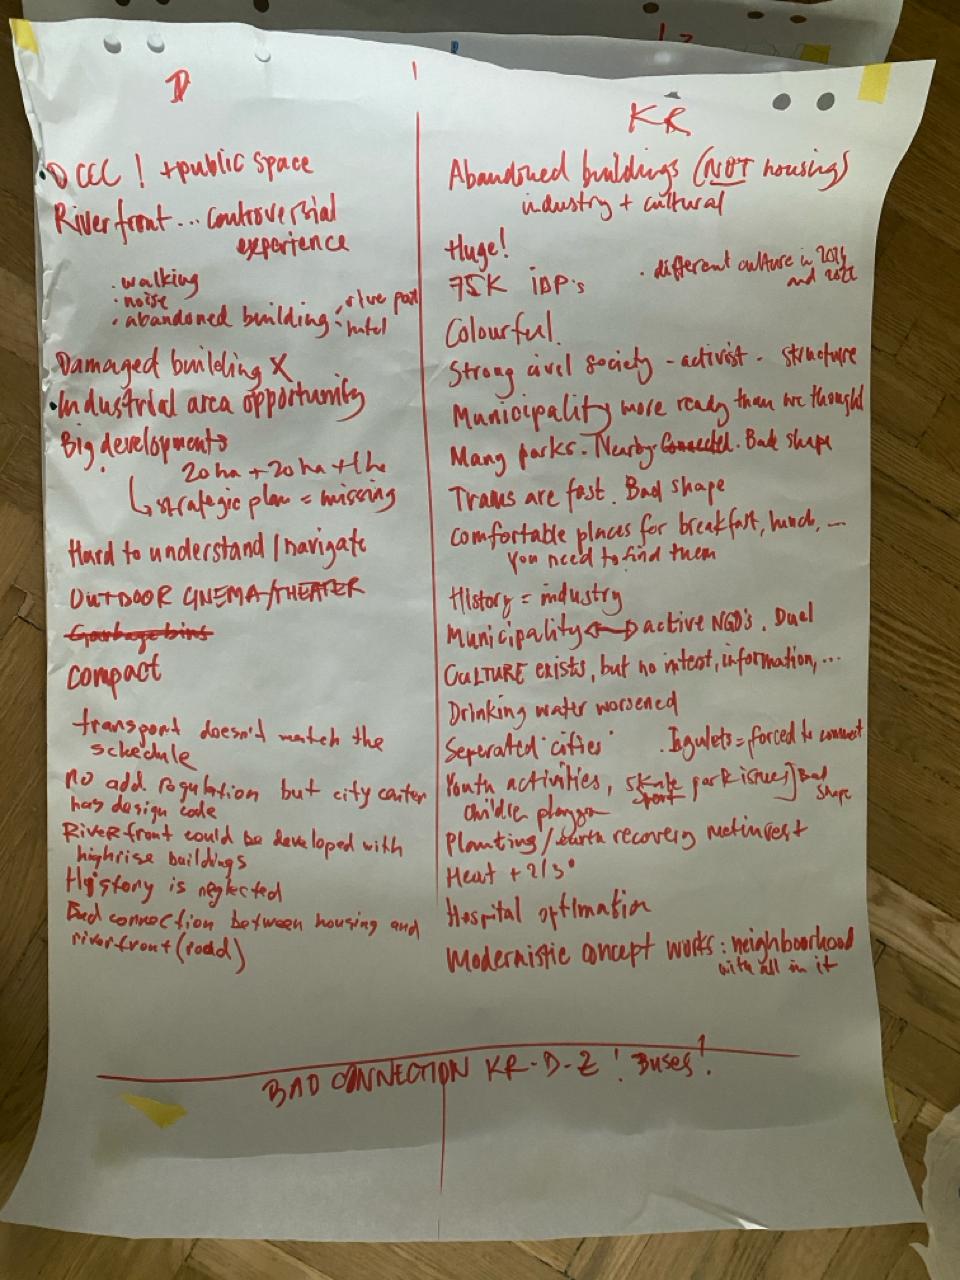 D
DCCC! + public space
Riverfront... controversial
experience
· walking
· noise
· abandoned building :
· hotel
Damaged building X
· Industrial area opportunity
Big developments
20 ha + 20 ha +
↳ strategic plan = missing
Hard to understand / navigate
OUTDOOR CINEMA/THEATER
Garbage bins
compact
transport doesn't match the
schedule
no add regulation but city center
has design code
Riverfront could be developed with
highrise buildings
History is neglected
Bad connection between housing and
riverfront (road)
KR
Abandoned buildings (NOT housing)
industry + cultural
Huge!
75K IDP's
· different culture in
and
Colourful.
Strong civil society - activist - structure
Municipality more ready than we thought
Many parks. Nearby Connected. Bad shape
Trams are fast. Bad shape
Comfortable places for breakfast, lunch, ...
You need to find them
History = industry
Municipality ↔ active NGO's. Duel
CULTURE exists, but no intent, information, ...
Drinking water worsened
Seperated 'cities'
. Ingulets = forced to connect
Youth activities, skate park issues] Bad
shape
sport
Planting / earth recovery
Heat + 2/3°
Hospital
Modernistic concept works: neighboorhood
with all in it
BAD CONNECTION KR-D-Z! Buses!